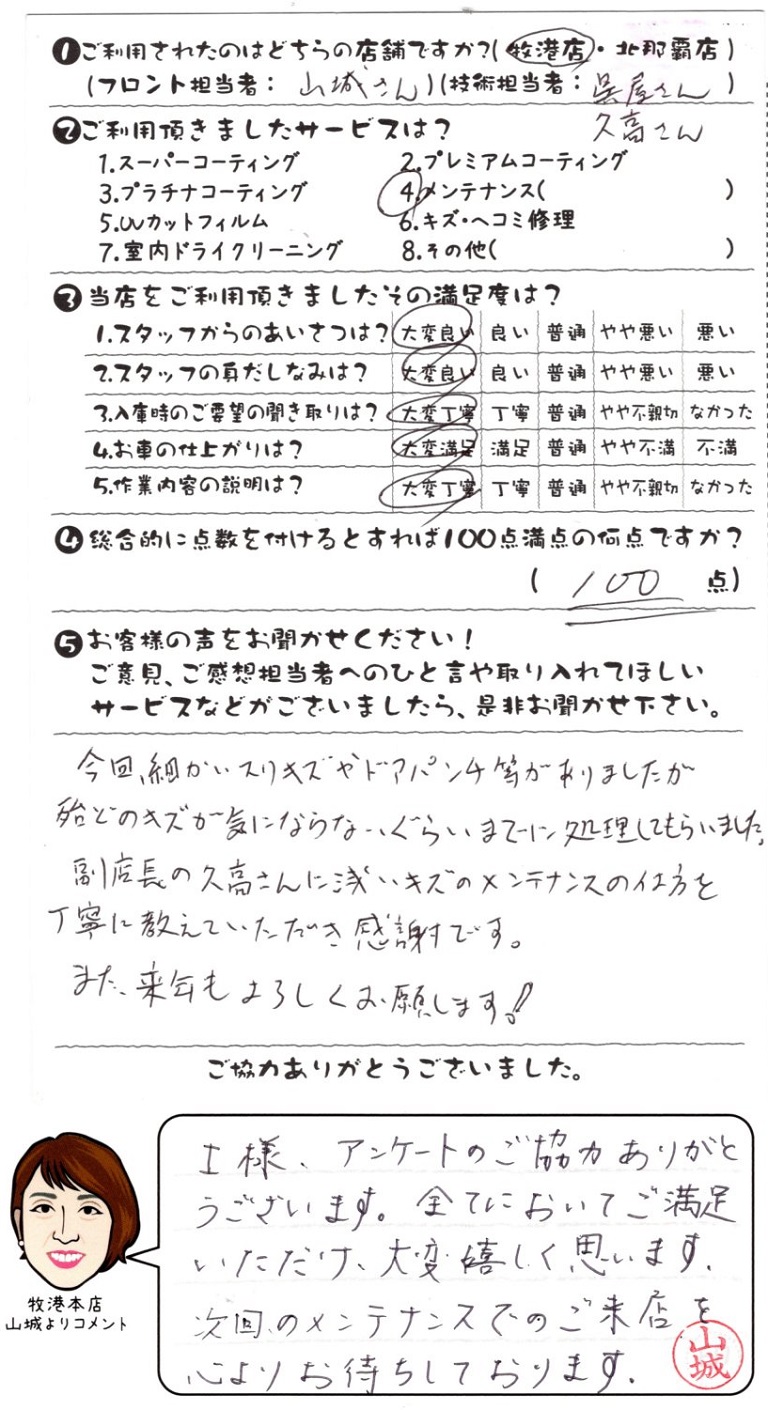 ❶ご利用されたのはどちらの店舗ですか?(牧港店・北那覇店)
(フロント担当者: 山城さん)(技術担当者: 呉屋さん )
久高さん
❷ご利用頂きましたサービスは?
1.スーパーコーティング 2.プレミアムコーティング
3.プラチナコーティング 4.メンテナンス( )
5.UVカットフィルム 6.キズ・ヘコミ修理
7.室内ドライクリーニング 8.その他( )
❸当店をご利用頂きましたその満足度は?
1.スタッフからのあいさつは? 大変良い 良い 普通 やや悪い 悪い
2.スタッフの身だしなみは? 大変良い 良い 普通 やや悪い 悪い
3.入庫時のご要望の聞き取りは? 大変丁寧 丁寧 普通 やや不親切 なかった
4.お車の仕上がりは? 大変満足 満足 普通 やや不満 不満
5.作業内容の説明は? 大変丁寧 丁寧 普通 やや不親切 なかった
❹総合的に点数を付けるとすれば100点満点の何点ですか?
( 100 点)
❺お客様の声をお聞かせください!
ご意見、ご感想担当者へのひと言や取り入れてほしい
サービスなどがございましたら、是非お聞かせ下さい。
今回、細かいスリキズやドアパンチ等がありましたが
殆どのキズが気にならないぐらいまでに処理してもらいました。
副店長の久高さんに浅いキズのメンテナンスの仕方を
丁寧に教えていただき感謝です。
また、来年もよろしくお願します!
ご協力ありがとうございました。
I様、アンケートのご協力ありがと
うございます。全てにおいてご満足
いただけ、大変嬉しく思います。
次回のメンテナンスでのご来店を
心よりお待ちしております。
山城
牧港本店
山城よりコメント